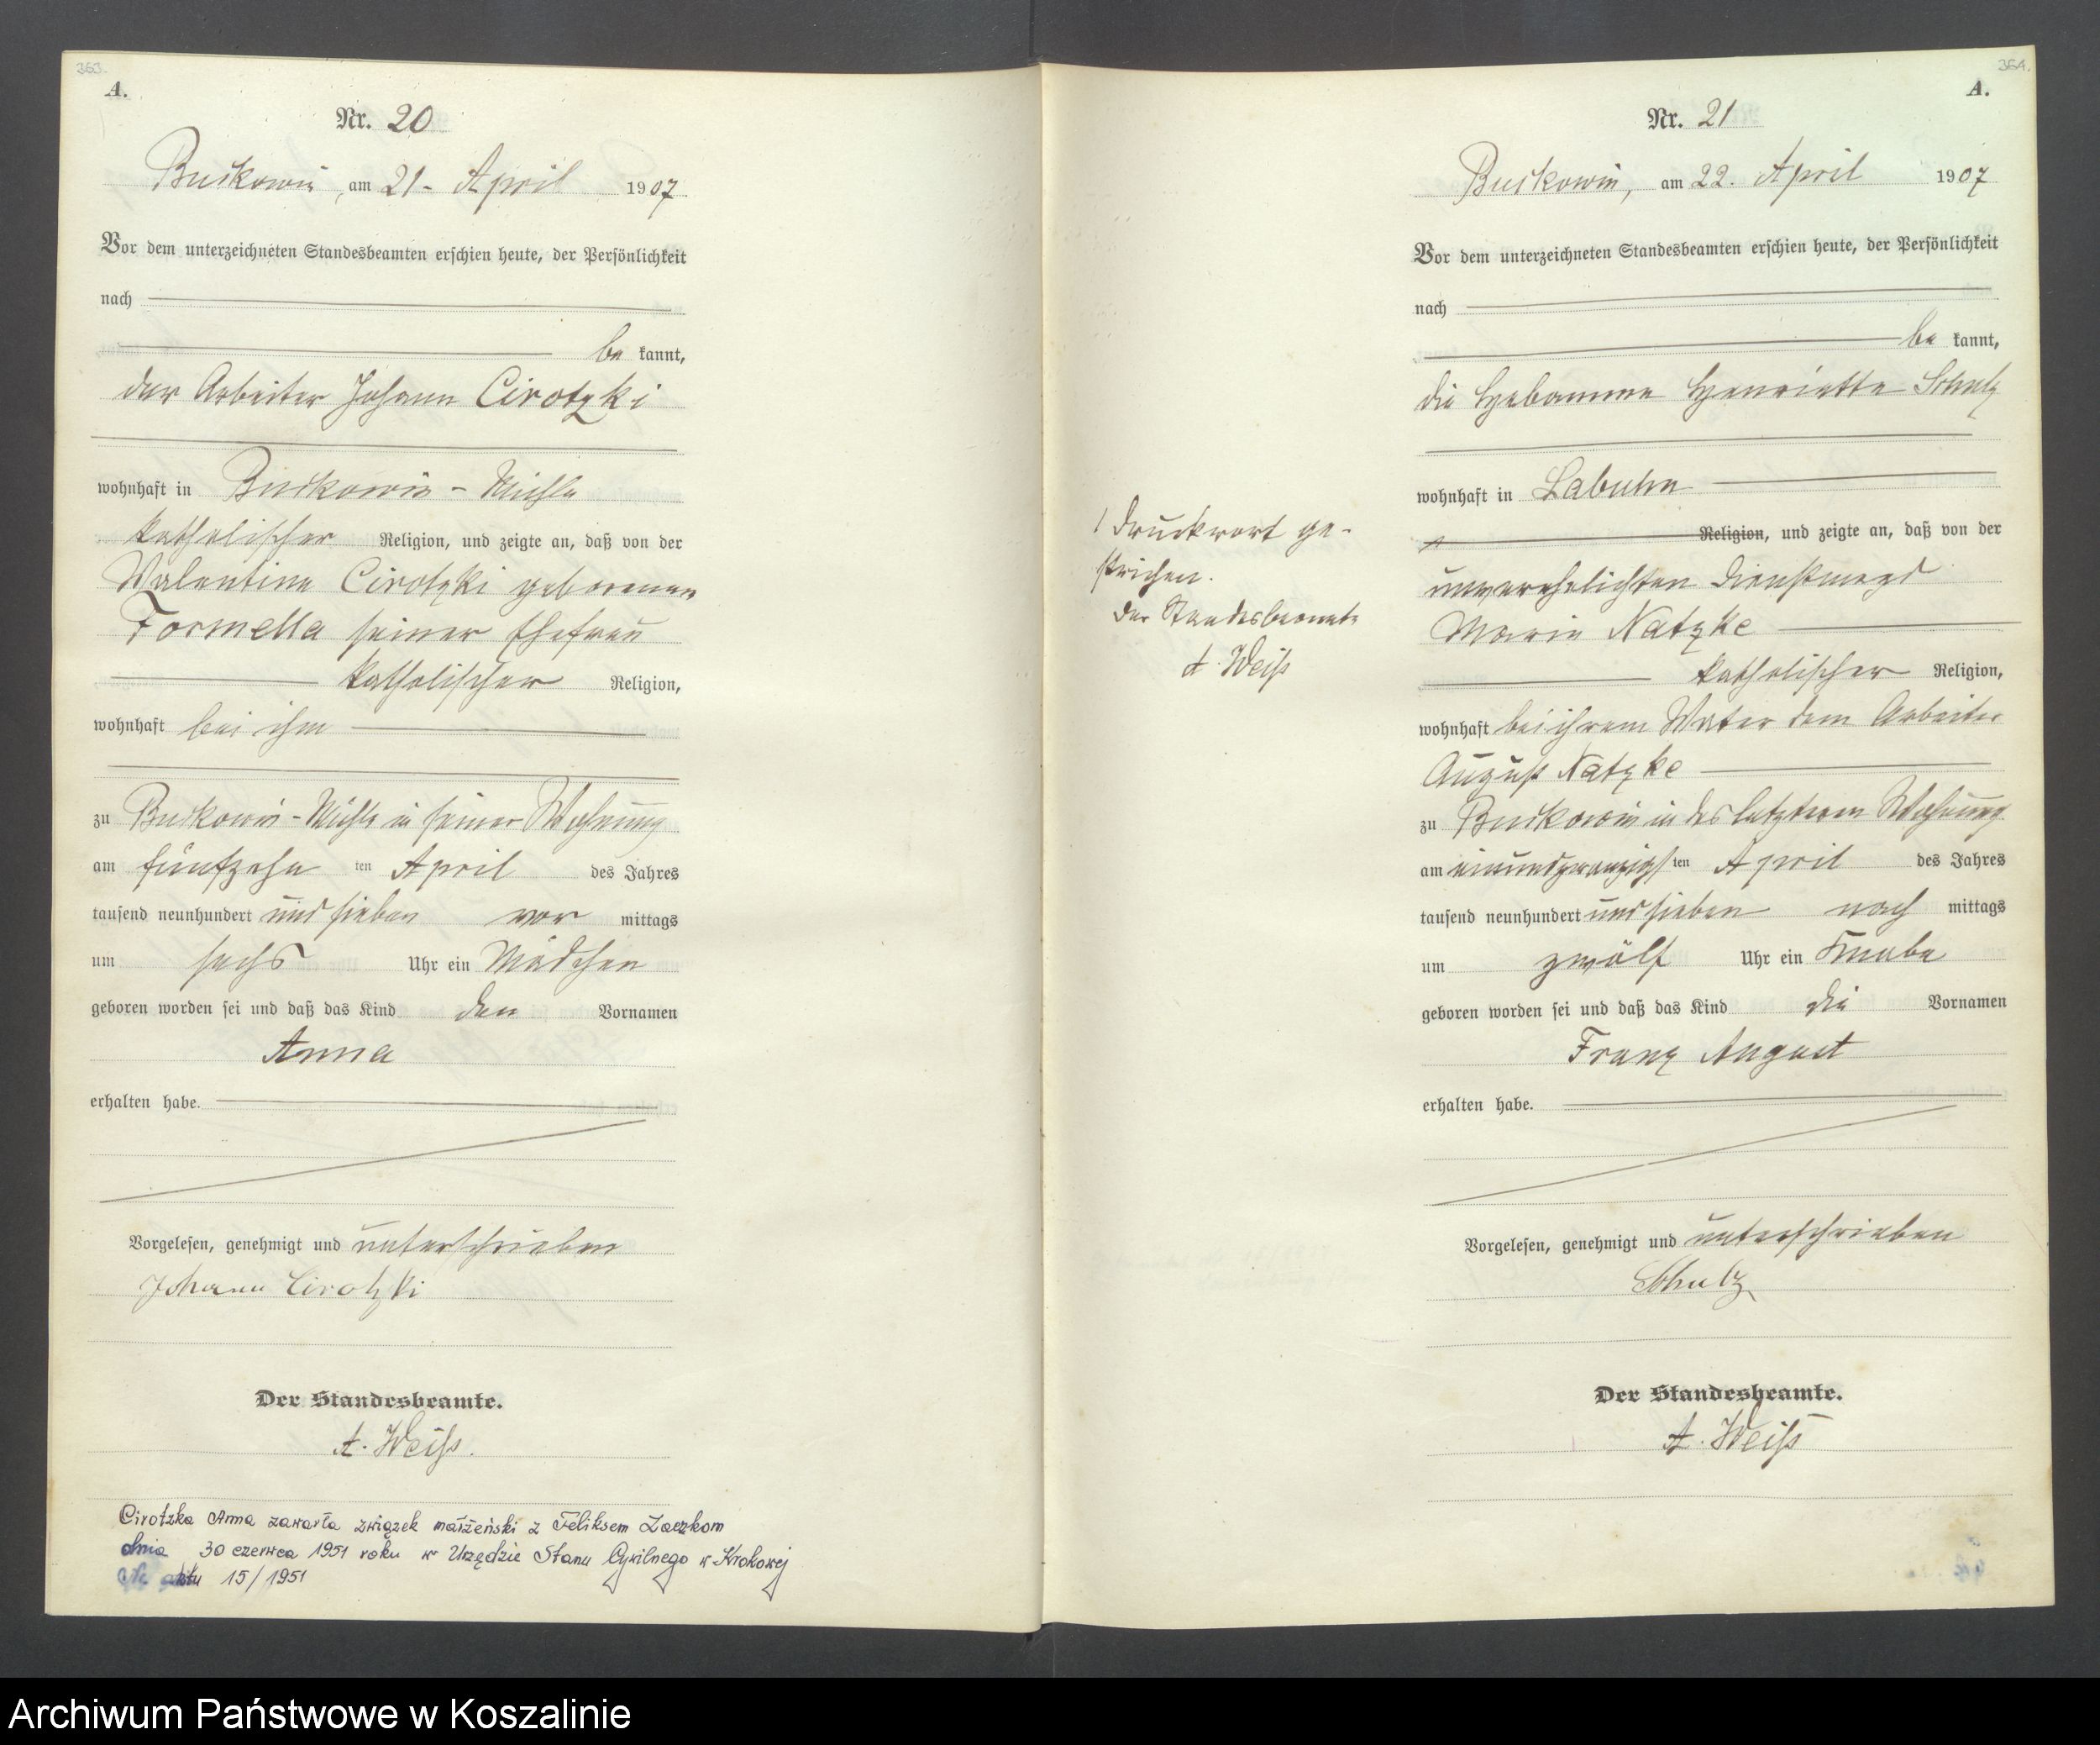 363.
A.
Nr. 20
Buckowin, am 21. April 1907.
Vor dem unterzeichneten Standesbeamten erschien heute, der Persönlichkeit
nach
be kannt,
der Arbeiter Johann Cirotzki
wohnhaft in Buckowin-Mühle
katholischer Religion, und zeigte an, daß von der
Valentine Cirotzki geborenen
Formella seiner Ehefrau
katholischer Religion,
wohnhaft bei ihm
zu Buckowin-Mühle in seiner Wohnung
am fünfzehn ten April des Jahres
tausend neunhundert und sieben vor mittags
um sechs Uhr ein Mädchen
geboren worden sei und daß das Kind den Vornamen
Anna
erhalten habe.
Vorgelesen, genehmigt und unterschrieben
Johann Cirotzki
Der Standesbeamte.
A. Weiß.
Cirotzka Anna zawarła związek małżeński z Feliksem
dnia 30 czerwca 1951 roku w Urzędzie Stanu Cywilnego w Krokowej
aktu 15/1951
364.
A.
Nr. 21
Buckowin, am 22. April 1907
Vor dem unterzeichneten Standesbeamten erschien heute, der Persönlichkeit
nach
be kannt,
die Hebamme Henriette Schulz
wohnhaft in Labuhn
Religion, und zeigte an, daß von der
unverehelichten Dienstmagd
Marie Natzke
katholischer Religion,
wohnhaft bei ihrem Vater dem Arbeiter
August Natzke
zu Buckowin in des letzteren Wohnung
am einundzwanzigsten April des Jahres
tausend neunhundert und sieben nach mittags
um zwölf Uhr ein Knabe
geboren worden sei und daß das Kind die Vornamen
Franz August
erhalten habe.
Vorgelesen, genehmigt und unterschrieben
Schulz
Der Standesbeamte.
A. Weiß
1 Druckwort ge-
strichen.
Der Standesbeamte
A. Weiß
Archiwum Państwowe w Koszalinie